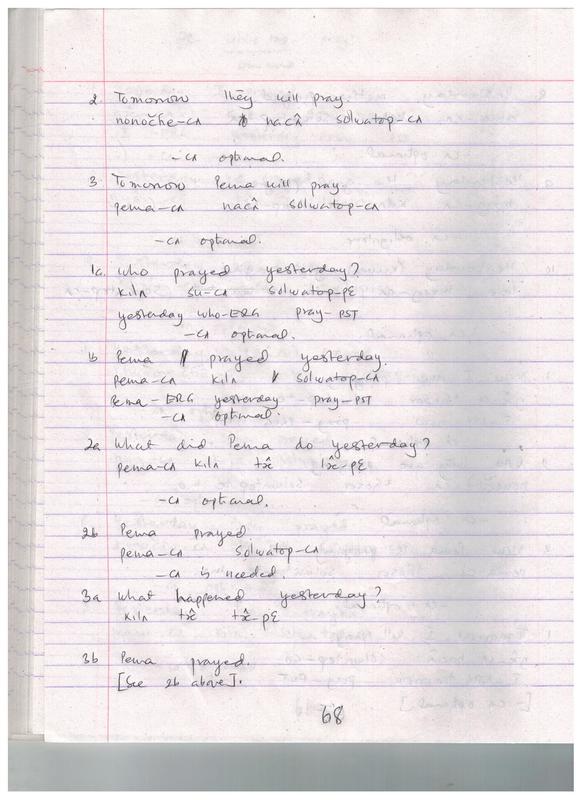 2. Tomorrow they will pray.
nonočhe-cʌ nacʌ̂ solwatop-cʌ
-cʌ optional.
3. Tomorrow Pema will pray.
pema-cʌ nacʌ̂ solwatop-cʌ
-cʌ optional.
1a. Who prayed yesterday?
kilʌ su-cʌ solwatop-pɛ
yesterday who-ERG pray-PST
-cʌ optional.
1b Pema prayed yesterday.
pema-cʌ kilʌ solwatop-cʌ
Pema-ERG yesterday pray-PST
-cʌ optional.
2a What did Pema do yesterday?
pema-cʌ kilʌ
-cʌ optional.
2b Pema prayed.
pema-cʌ solwatop-cʌ
-cʌ is needed.
3a What happened yesterday?
kilʌ
3b Pema prayed.
[See 2b above].
68